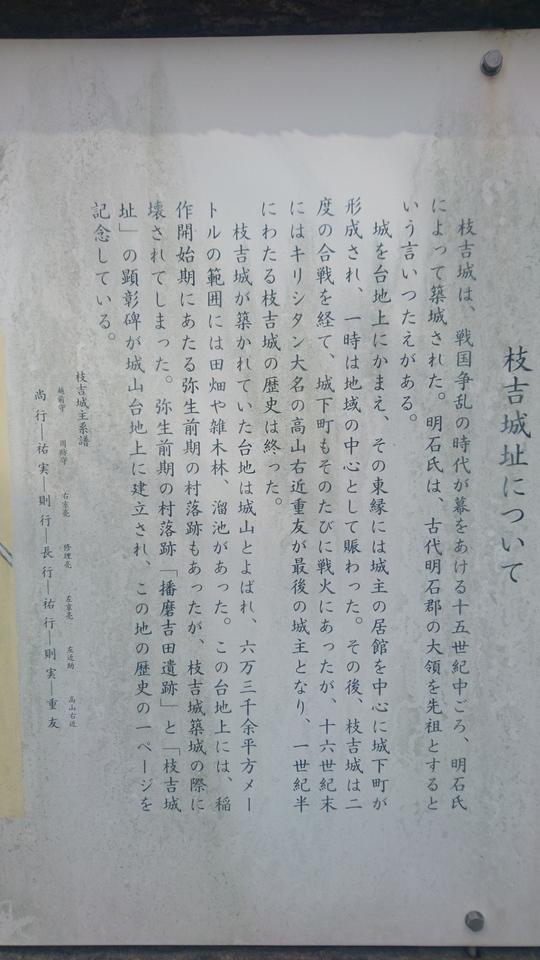 枝吉城址について
枝吉城は、戦国争乱の時代が幕をあける十五世紀中ごろ、明石氏
によって築城された。明石氏は、古代明石郡の大領を先祖とすると
いう言いつたえがある。
城を台地上にかまえ、その東縁には城主の居館を中心に城下町が
形成され、一時は地域の中心として賑わった。その後、枝吉城は二
度の合戦を経て、城下町もそのたびに戦火にあったが、十六世紀末
にはキリシタン大名の高山右近重友が最後の城主となり、一世紀半
にわたる枝吉城の歴史は終った。
枝吉城が築かれていた台地は城山とよばれ、六万三千余平方メー
トルの範囲には田畑や雑木林、溜池があった。この台地上には、稲
作開始期にあたる弥生前期の村落跡もあったが、枝吉城築城の際に
壊されてしまった。弥生前期の村落跡「播磨吉田遺跡」と「枝吉城
址」の顕彰碑が城山台地上に建立され、この地の歴史の一ページを
記念している。
枝吉城主系譜
越前守 周防守 右京亮 修理亮 左京亮 左近助 高山右近
尚行―祐実―則行―長行―祐行―則実―重友